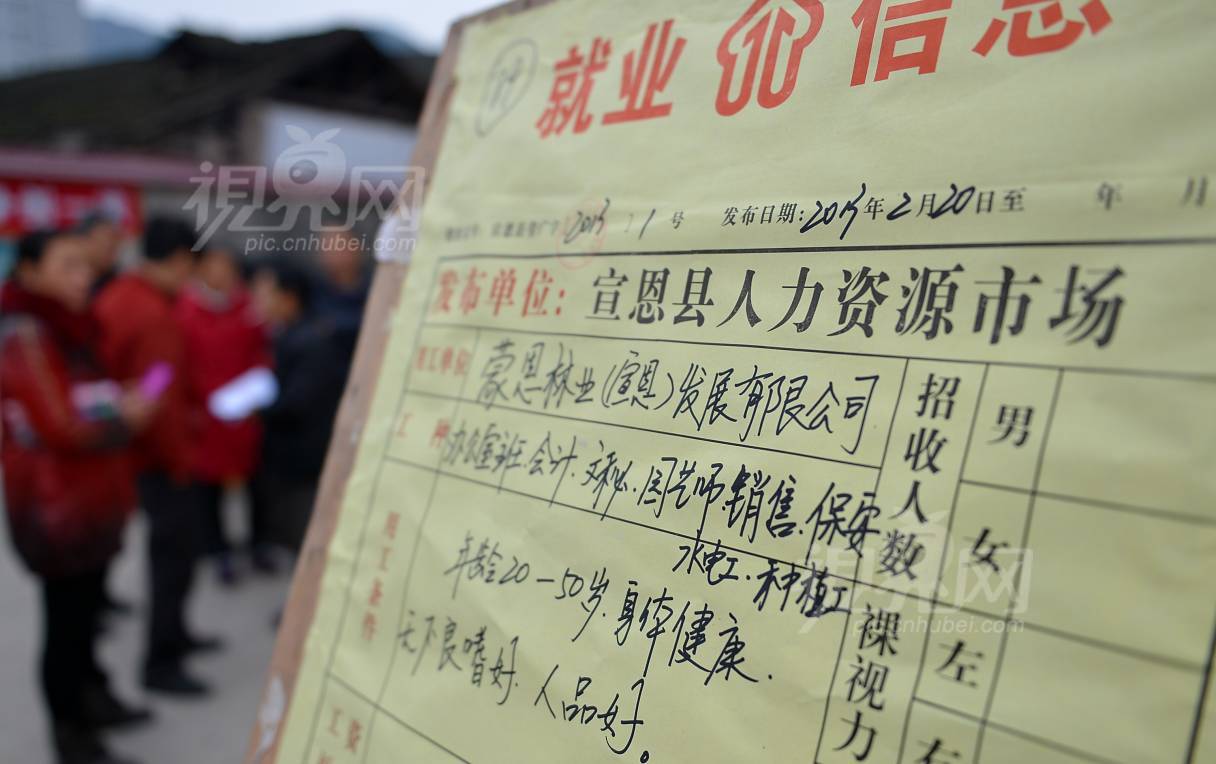 就业 信息
2013 1 号 发布日期:2013年2月20日至 年 月
发布单位: 宣恩县人力资源市场
用工单位 蒙恩林业(宣恩)发展有限公司
招收人数 男
女
工种 办公室主任.会计.文秘.园艺师.销售.保安
水电工.种植工
用工条件 年龄20-50岁.身体健康.
无不良嗜好.人品好。
裸视力 左
右
工资
视界网
pic.cnhubei.com
pic.cnhubei.com